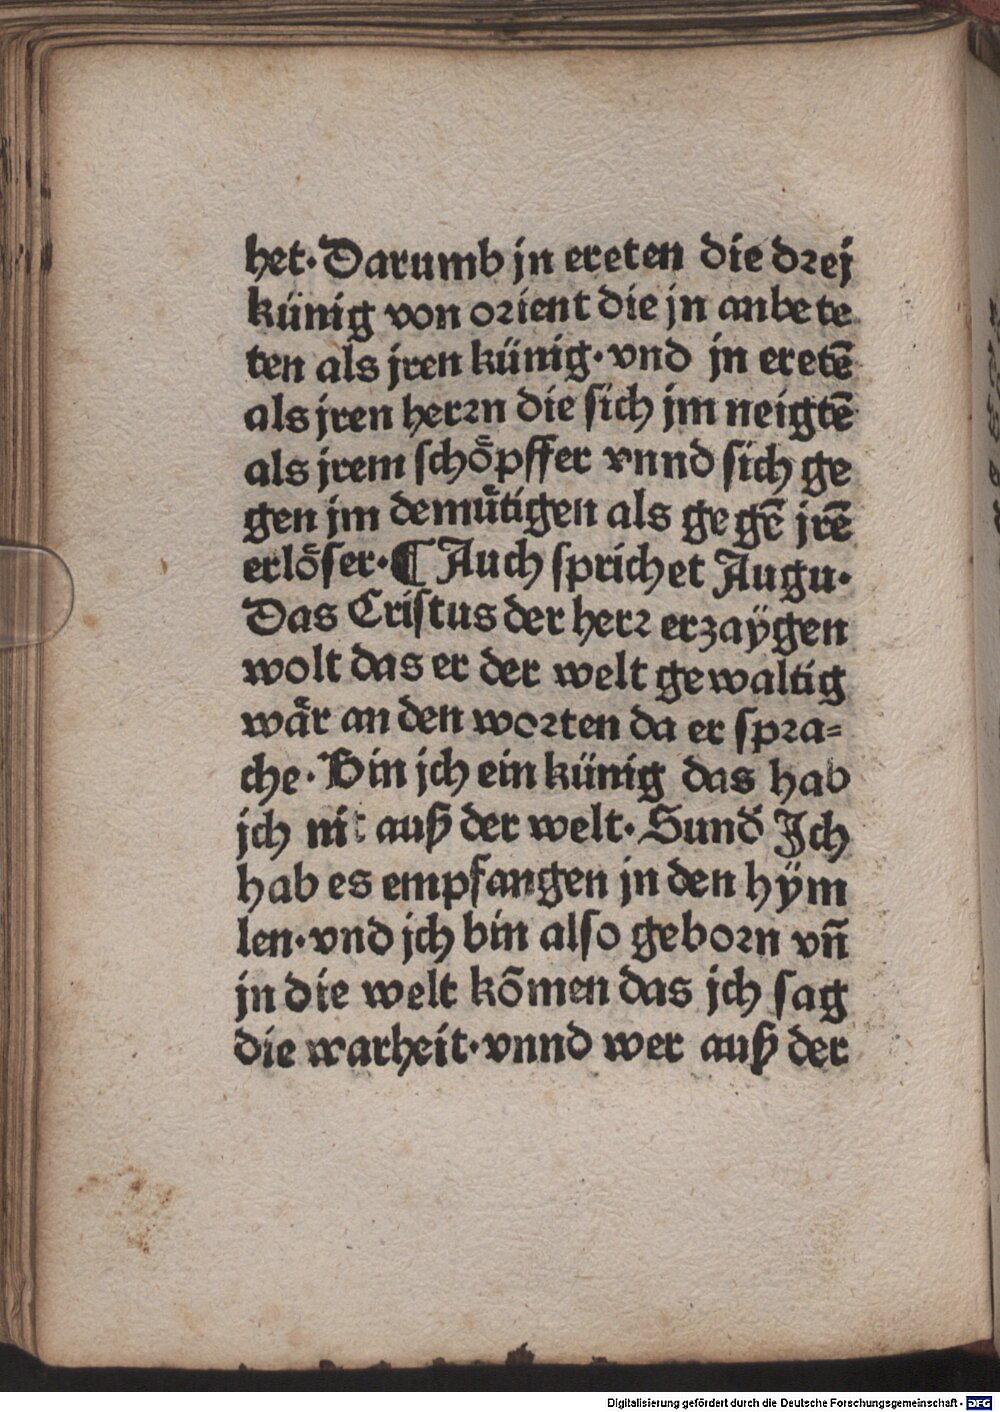 het·Darumb jn ereten die drej
künig von orient die jn anbete
ten als jren künig·vnd jn eretē
als jren herrn die sich jm neigtē
als jrem schoͤpffer vnnd sich ge
gen jm demuͤtigen als gegē jrē
erloͤser·¶ Auch sprichet Augu·
Das Cristus der herr erzaÿgen
wolt das er der welt gewaltig
waͤr an den worten da er spra=
che·Bin jch ein künig das hab
jch nit auß der welt·Sund̛ Jch
hab es empfangen jn den hÿm
len·vnd jch bin also geborn vñ
jn die welt kōmen das jch sag
die warheit·vnnd wer auß der
Digitalisierung gefördert durch die Deutsche Forschungsgemeinschaft - DFG